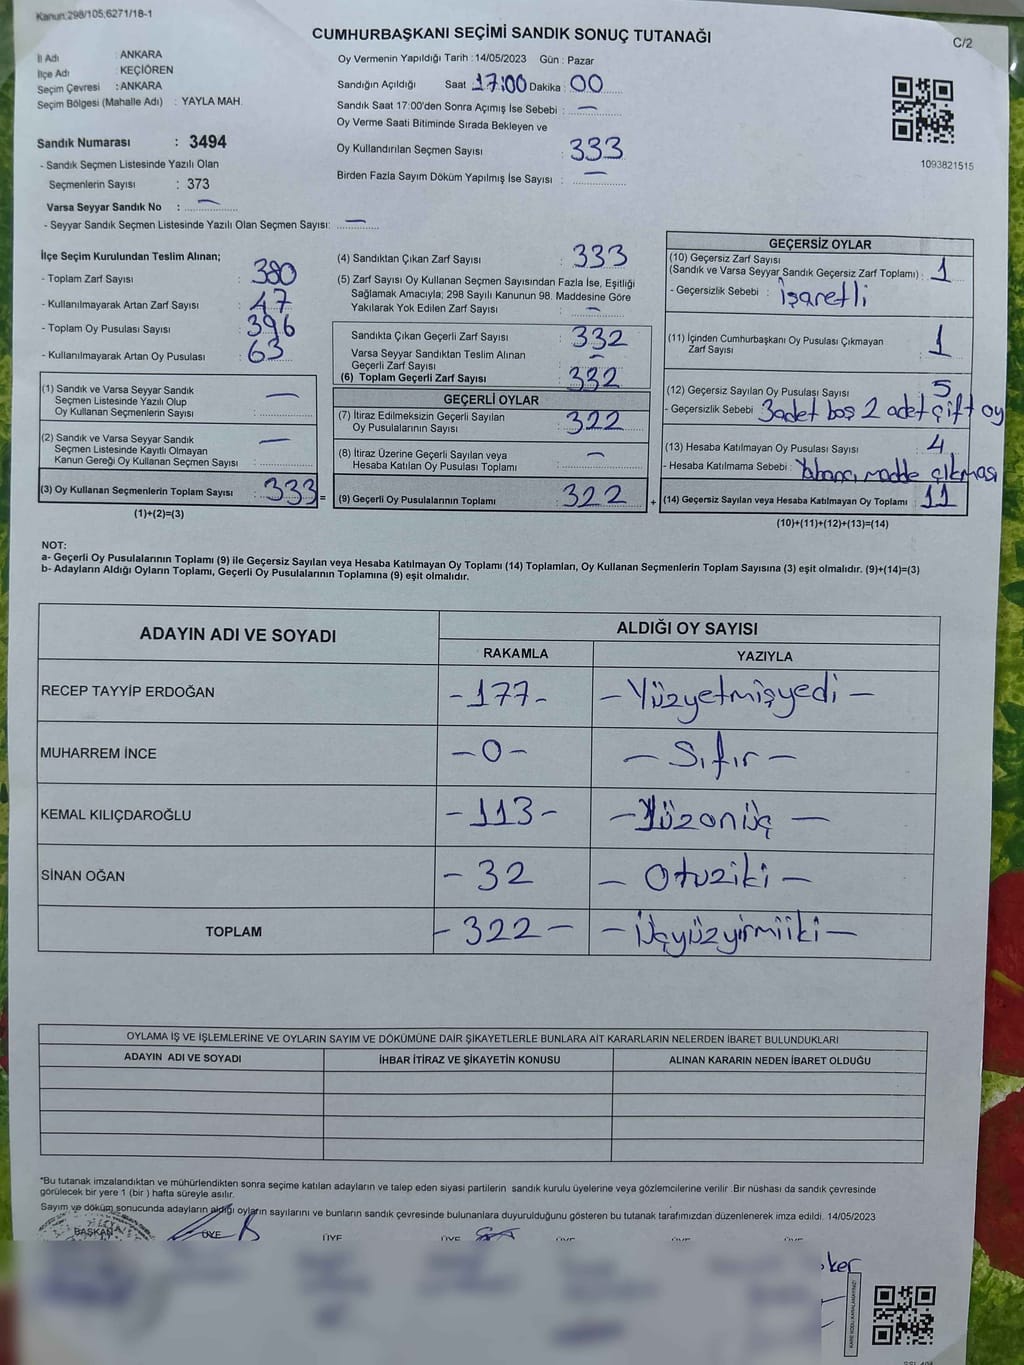 Kanun:298/105;6271/18-1
CUMHURBAŞKANI SEÇİMİ SANDIK SONUÇ TUTANAĞI
C/2
İl Adı : ANKARA
İlçe Adı : KEÇİÖREN
Seçim Çevresi : ANKARA
Seçim Bölgesi (Mahalle Adı) : YAYLA MAH.
Oy Vermenin Yapıldığı Tarih : 14/05/2023 Gün : Pazar
Sandığın Açıldığı Saat 17:00 Dakika : 00
Sandık Saat 17:00'den Sonra Açımış İse Sebebi : —
Oy Verme Saati Bitiminde Sırada Bekleyen ve
Oy Kullandırılan Seçmen Sayısı : 333
Birden Fazla Sayım Döküm Yapılmış İse Sayısı : —
1093821515
Sandık Numarası : 3494
- Sandık Seçmen Listesinde Yazılı Olan
Seçmenlerin Sayısı : 373
Varsa Seyyar Sandık No : —
- Seyyar Sandık Seçmen Listesinde Yazılı Olan Seçmen Sayısı: —
İlçe Seçim Kurulundan Teslim Alınan;
- Toplam Zarf Sayısı : 380
- Kullanılmayarak Artan Zarf Sayısı : 47
- Toplam Oy Pusulası Sayısı : 396
- Kullanılmayarak Artan Oy Pusulası : 63
(1) Sandık ve Varsa Seyyar Sandık
Seçmen Listesinde Yazılı Olup
Oy Kullanan Seçmenlerin Sayısı : —
(2) Sandık ve Varsa Seyyar Sandık
Seçmen Listesinde Kayıtlı Olmayan
Kanun Gereği Oy Kullanan Seçmen Sayısı : —
(3) Oy Kullanan Seçmenlerin Toplam Sayısı : 333 =
(1)+(2)=(3)
(4) Sandıktan Çıkan Zarf Sayısı : 333
(5) Zarf Sayısı Oy Kullanan Seçmen Sayısından Fazla İse, Eşitliği
Sağlamak Amacıyla; 298 Sayılı Kanunun 98. Maddesine Göre
Yakılarak Yok Edilen Zarf Sayısı : —
Sandıkta Çıkan Geçerli Zarf Sayısı : 332
Varsa Seyyar Sandıktan Teslim Alınan
Geçerli Zarf Sayısı : —
(6) Toplam Geçerli Zarf Sayısı : 332
GEÇERLİ OYLAR
(7) İtiraz Edilmeksizin Geçerli Sayılan
Oy Pusulalarının Sayısı : 322
(8) İtiraz Üzerine Geçerli Sayılan veya
Hesaba Katılan Oy Pusulası Toplamı : —
(9) Geçerli Oy Pusulalarının Toplamı : 322 +
GEÇERSİZ OYLAR
(10) Geçersiz Zarf Sayısı
(Sandık ve Varsa Seyyar Sandık Geçersiz Zarf Toplamı) : 1
- Geçersizlik Sebebi : İşaretli
(11) İçinden Cumhurbaşkanı Oy Pusulası Çıkmayan
Zarf Sayısı : 1
(12) Geçersiz Sayılan Oy Pusulası Sayısı : 5
- Geçersizlik Sebebi : 3 adet boş 2 adet çift oy
(13) Hesaba Katılmayan Oy Pusulası Sayısı : 4
- Hesaba Katılmama Sebebi : Yabancı madde çıkması
(14) Geçersiz Sayılan veya Hesaba Katılmayan Oy Toplamı : 11
(10)+(11)+(12)+(13)=(14)
NOT:
a- Geçerli Oy Pusulalarının Toplamı (9) ile Geçersiz Sayılan veya Hesaba Katılmayan Oy Toplamı (14) Toplamları, Oy Kullanan Seçmenlerin Toplam Sayısına (3) eşit olmalıdır. (9)+(14)=(3)
b- Adayların Aldığı Oyların Toplamı, Geçerli Oy Pusulalarının Toplamına (9) eşit olmalıdır.
ADAYIN ADI VE SOYADI
ALDIĞI OY SAYISI
RAKAMLA YAZIYLA
RECEP TAYYİP ERDOĞAN -177- - Yüzyetmişyedi -
MUHARREM İNCE -0- - Sıfır -
KEMAL KILIÇDAROĞLU -113- - Yüzonüç -
SİNAN OĞAN - 32 - Otuziki -
TOPLAM - 322 - - Üçyüzyirmiiki -
OYLAMA İŞ VE İŞLEMLERİNE VE OYLARIN SAYIM VE DÖKÜMÜNE DAİR ŞİKAYETLERLE BUNLARA AİT KARARLARIN NELERDEN İBARET BULUNDUKLARI
ADAYIN ADI VE SOYADI İHBAR İTİRAZ VE ŞİKAYETİN KONUSU ALINAN KARARIN NEDEN İBARET OLDUĞU
*Bu tutanak imzalandıktan ve mühürlendikten sonra seçime katılan adayların ve talep eden siyasi partilerin sandık kurulu üyelerine veya gözlemcilerine verilir .Bir nüshası da sandık çevresinde
görülecek bir yere 1 (bir ) hafta süreyle asılır.
Sayım ve döküm sonucunda adayların aldığı oyların sayılarını ve bunların sandık çevresinde bulunanlara duyurulduğunu gösteren bu tutanak tarafımızdan düzenlenerek imza edildi. 14/05/2023
BAŞKAN ÜYE ÜYE ÜYE ÜYE ÜYE ÜYE